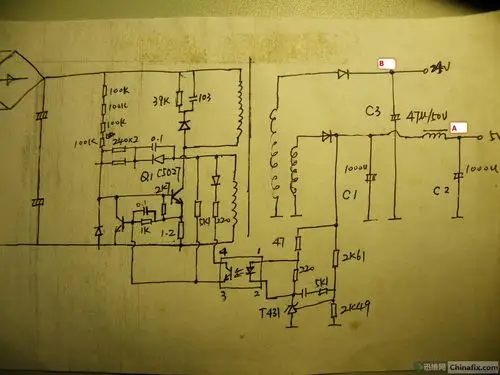 B
24V
100K
100K
100K
100K
39K
103
C3
47μ/50V
A
5V
240K2
0.1
Q1 C5027
1000u
C1
1000u
C2
2K7
0.1
1K
1-2
5K1
220
47
4
1
3
2
220
2K61
5K1
T431
2K49
迅维网 Chinafix.com